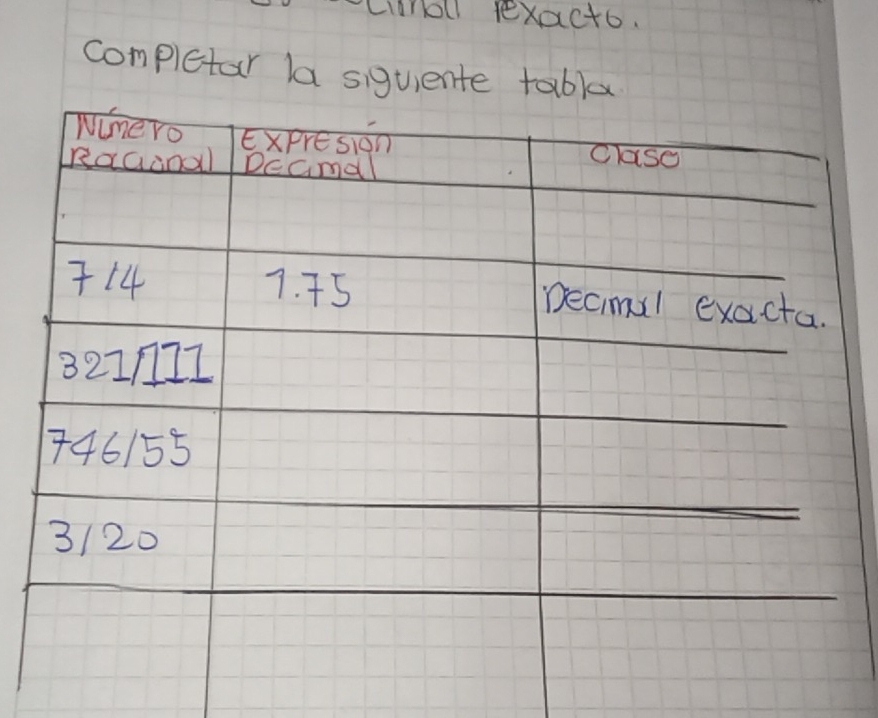 exacto.
Completar la siguiente tabla
Número Racional | Expresión Decimal | Clase
7/4 | 1.75 | Decimal exacta.
321/111
746/55
3/20